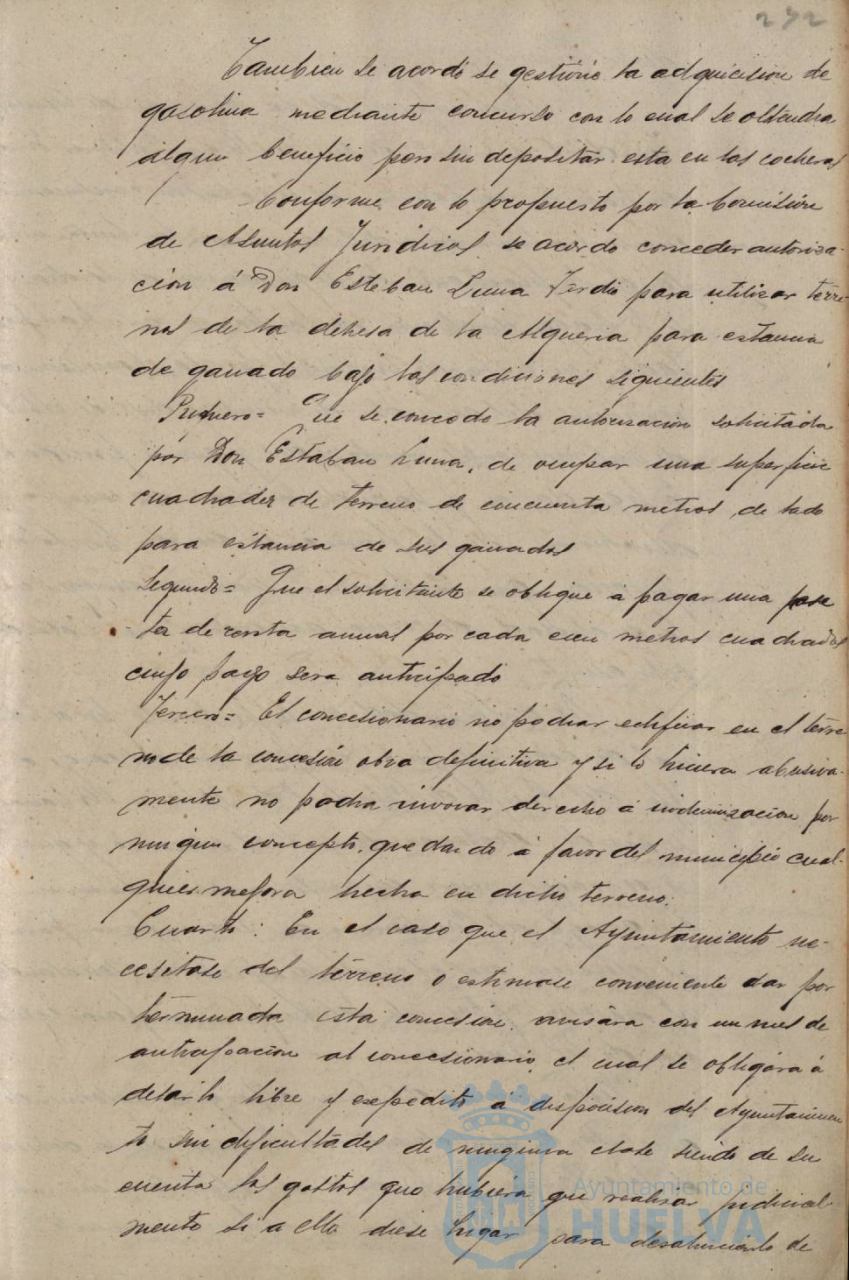 232
Tambien se acordó se gestióne la adquicision de
gasolina mediante concurso con lo cual se obtendra
algun beneficio para sin depositar esta en las cocheras
Conforme con lo propuesto por la Comision
de Asuntos Juridicos se acordo conceder autoriza-
cion á Don Esteban Luna para utilizar terre-
nos de la dehesa de la Alqueria para estancia
de ganado bajo las condiciones siguientes
Primero= Que se concede la autorizacion solicitada
por Don Estaban Luna, de ocupar una superficie
cuadrader de terreno de cincuenta metros de lado
para estancia de sus ganados
Segundo= Que el solicitante se oblique a pagar una pese
ta de renta anual por cada cien metros cuadrados
cuyo pago sera anticipado
Tercero= El concesionario no podrar edificar en el terre
no de la concesión obra definitiva y si lo hiciera abusiva-
mente no podra invocar derecho á indemnizacion por
ningun concepto, quedando á favor del municipio cual-
quier mejora hecha en dicho terreno.
Cuarto: En el caso que el Ayuntamiento ne-
cesitase del terreno o estimase conveniente dar por
terminada esta concesion avisára con un mes de
anticipacion al concesionario el cual se obligára á
dejarlo libre y expedito á disposicion del Ayuntamien
to sin dificultades de ninguna clase siendo de su
cuenta los gastos que hubiera que realizar judicial
mente si a ello diese lugar para desahucio de
Ayuntamiento de
HUELVA